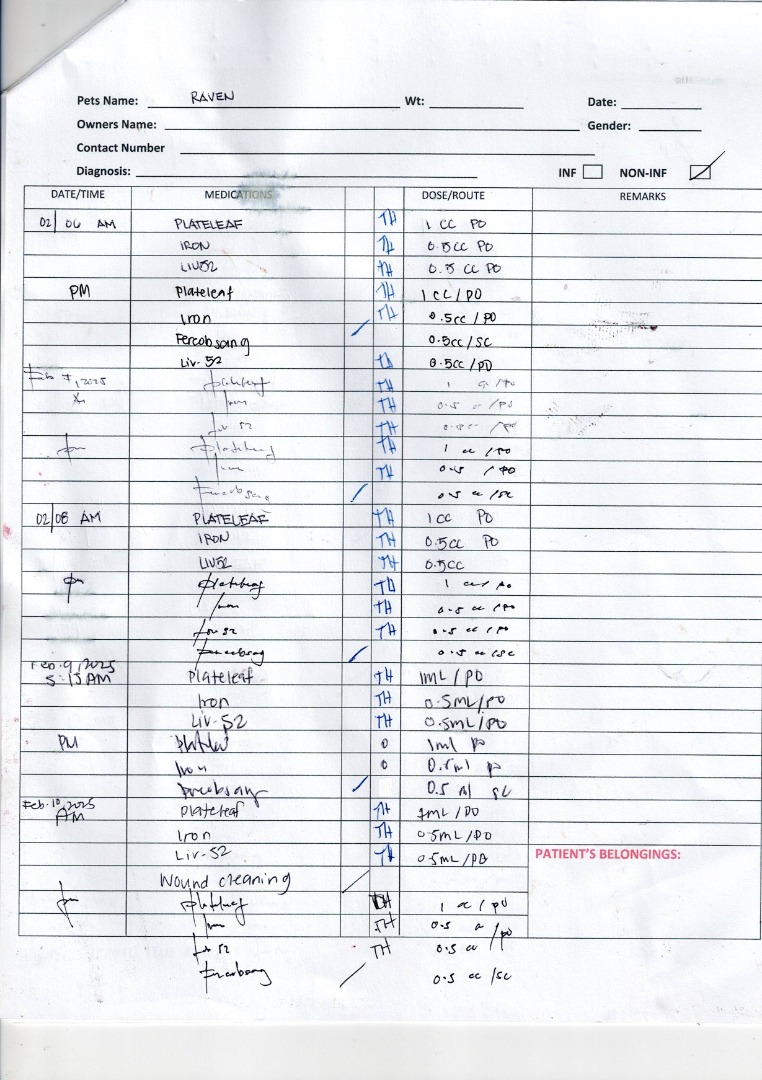 Pets Name: RAVEN Wt: Date:
Owners Name: Gender:
Contact Number
Diagnosis: INF NON-INF
DATE/TIME MEDICATIONS DOSE/ROUTE REMARKS
02/06 AM PLATELEAF TH 1 CC PO
IRON TH 0.5CC PO
LIV52 TH 0.5 CC PO
PM Plateleaf TH 1 CC/PO
Iron TH 0.5cc/PO
Fercobsang 0.5cc/SC
Liv-52 TH 0.5cc/PO
Feb 7, 2025 plateleaf TH 1 cc/PO
Iron TH 0.5 cc/PO
Liv 52 TH 0.5 cc/PO
pm plateleaf TH 1 cc/PO
Iron TH 0.5 /PO
Fercobsang 0.5 cc/SC
02/08 AM PLATELEAF TH 1CC PO
IRON TH 0.5CC PO
LIV52 TH 0.5CC
pm plateleaf TH 1 cc/PO
Iron TH 0.5 cc/PO
Liv 52 TH 0.5 cc/PO
Fercobsang 0.5 cc/SC
Feb. 9, 2025 Plateleaf TH 1mL/PO
5:15AM
Iron TH 0.5mL/PO
Liv-52 TH 0.5mL/PO
PM 0 1ml PO
Iron 0 0.5ml PO
Fercobsang 0.5 ml SC
Feb. 10, 2025 Plateleaf TH 1mL/PO
AM
Iron TH 0.5mL/PO
Liv-52 TH 0.5mL/PO
PATIENT'S BELONGINGS:
Wound cleaning
pm plateleaf TH 1 cc/PO
Iron TH 0.5 cc/PO
Liv 52 TH 0.5 cc
Fercobsang 0.5 cc/SC